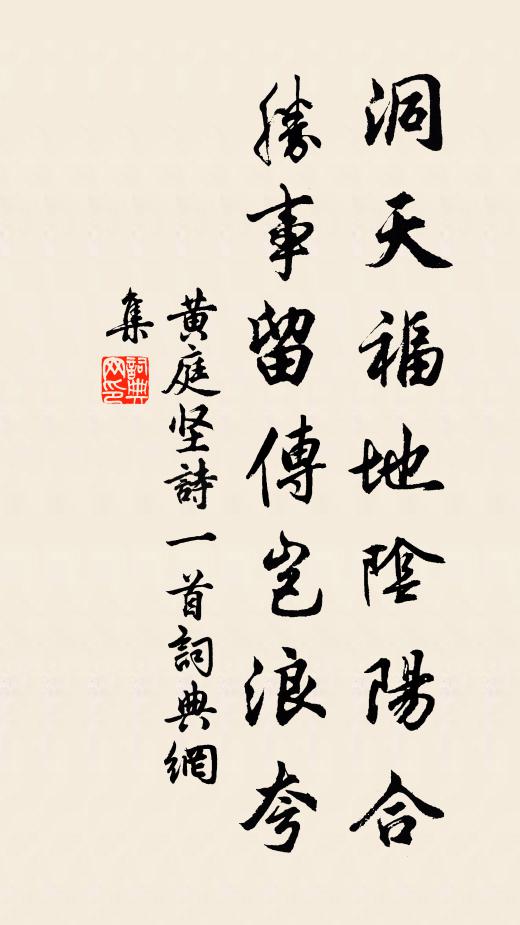 洞天福地陰陽合
勝事留傳豈浪夸
黄庭坚詩一首詞典網
集
詞典网印